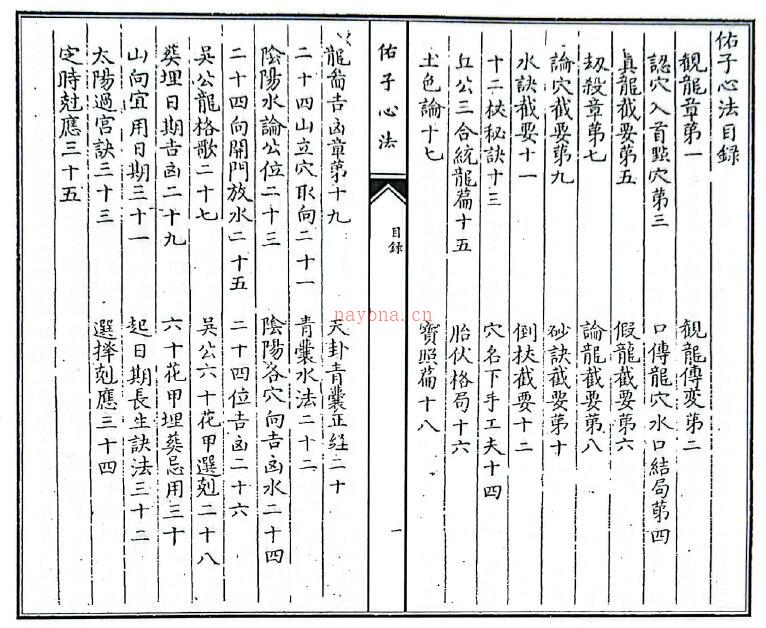 佑子心法目録
觀龍章第一 觀龍傳変第二
認穴入首點穴第三 口傳龍穴水口結局第四
眞龍截要第五 假龍截要第六
刼殺章第七 論龍截要第八
論穴截要第九 砂訣截要第十
水訣截要十一 倒扶截要十二
十二杖秘訣十三 穴名下手工夫十四
丘公三合統龍篇十五 胎伏格局十六
土色論十七 寶照篇十八
佑子心法 目録 一
龍崙吉凶章第十九 天卦青囊正経二十
二十四山立穴取向二十一 青囊水法二十二
陰陽水論公位二十三 陰陽各穴向吉凶水二十四
二十四向開門放水二十五 二十四位吉凶二十六
吳公龍格歌二十七 吳公六十花甲選剋二十八
葬埋日期吉凶二十九 六十花甲埋葬忌用三十
山向宜用日期三十一 起日期長生訣法三十二
太陽過宮訣三十三 選擇剋應三十四
定時尅應三十五
nayona.cn